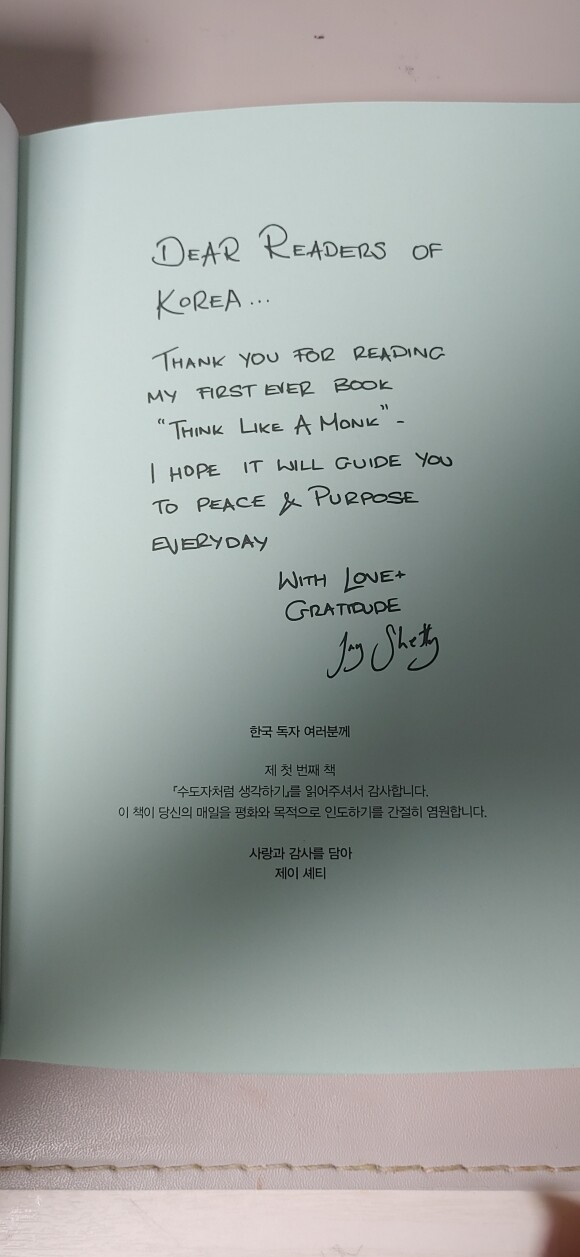 DEAR READERS OF
KOREA...
THANK YOU FOR READING
MY FIRST EVER BOOK
"THINK LIKE A MONK" -
I HOPE IT WILL GUIDE YOU
TO PEACE & PURPOSE
EVERYDAY
WITH LOVE +
GRATIDUDE
Jay Shetty
한국 독자 여러분께
제 첫 번째 책
『수도자처럼 생각하기』를 읽어주셔서 감사합니다.
이 책이 당신의 매일을 평화와 목적으로 인도하기를 간절히 염원합니다.
사랑과 감사를 담아
제이 셰티